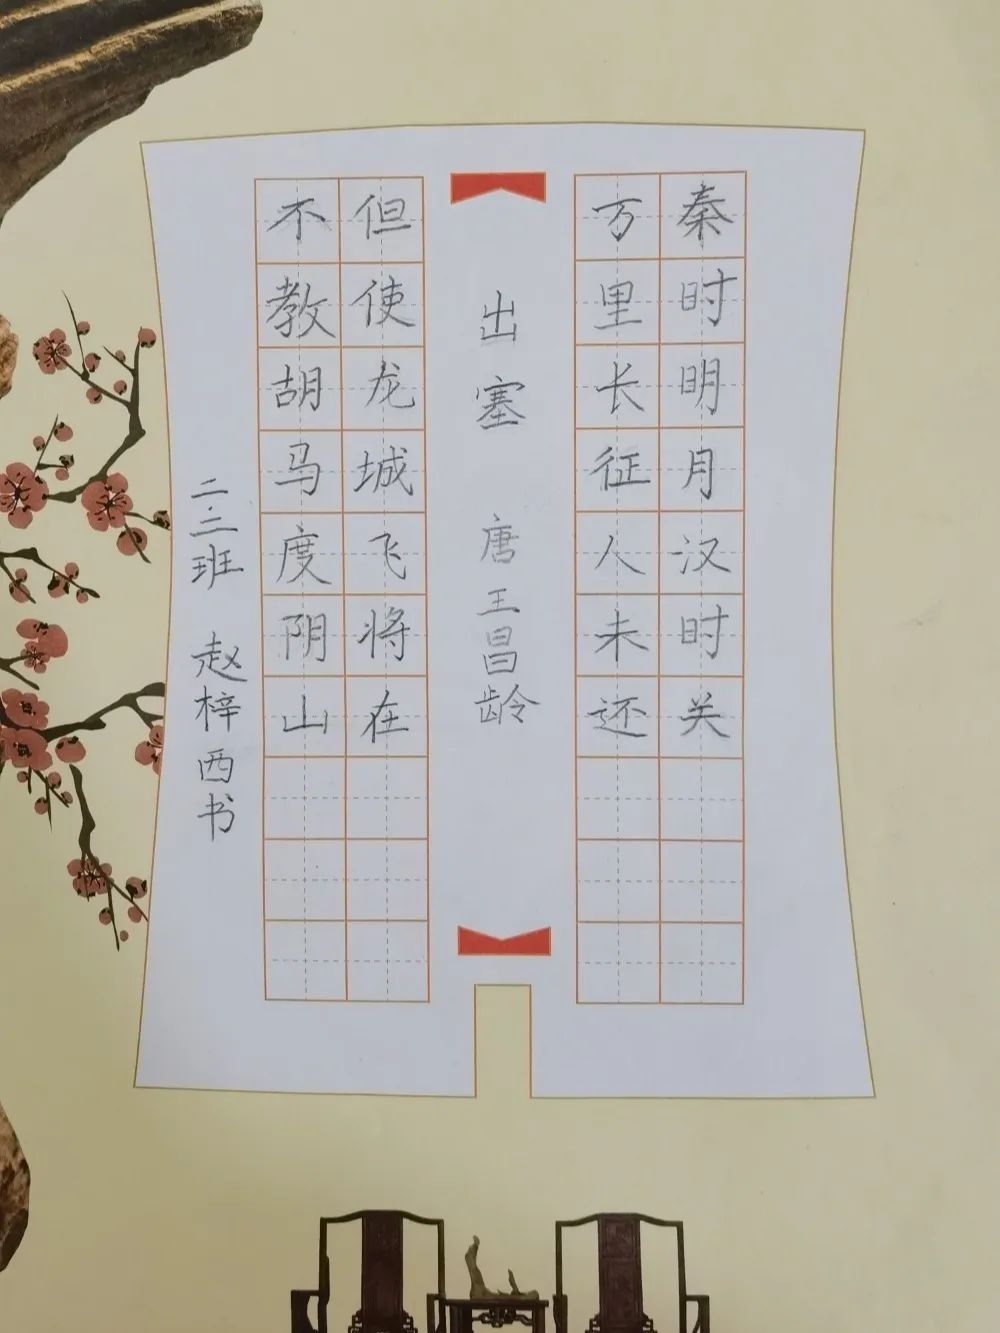 秦时明月汉时关
万里长征人未还
出塞 唐 王昌龄
但使龙城飞将在
不教胡马度阴山
二.二班 赵梓西书